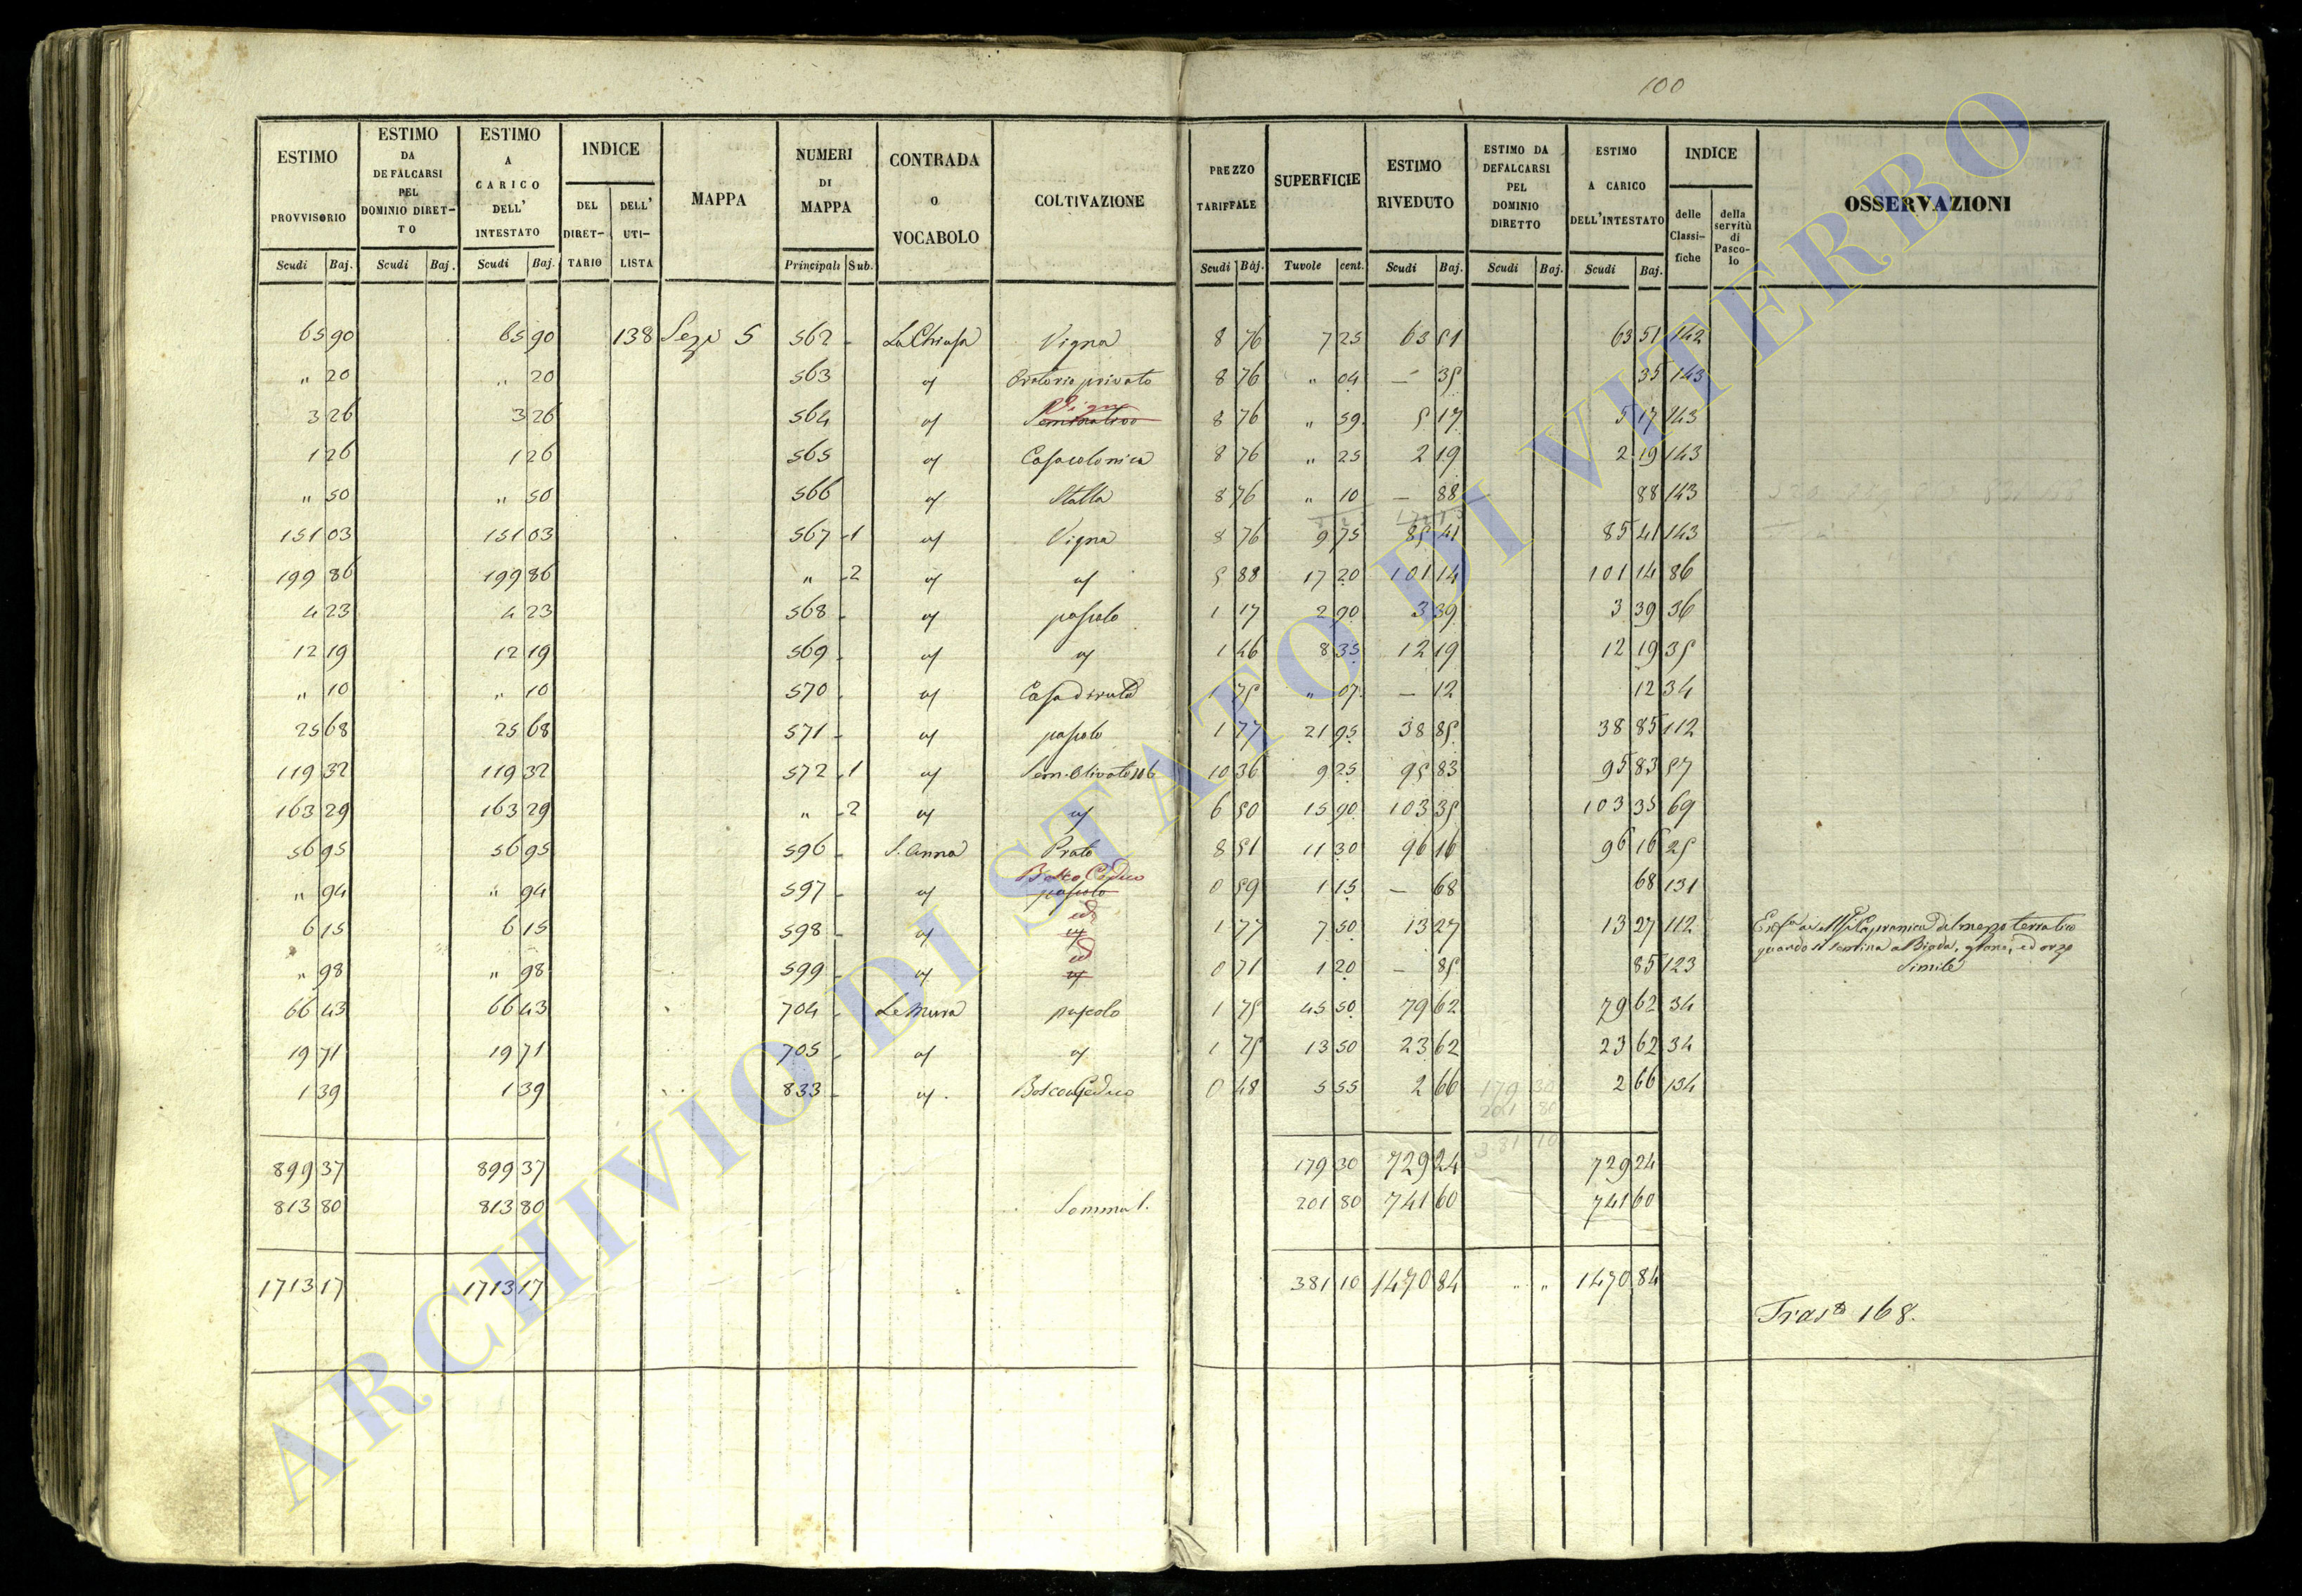 100
ESTIMO PROVVISORIO | ESTIMO DA DEFALCARSI PEL DOMINIO DIRETTO | ESTIMO A CARICO DELL' INTESTATO | INDICE DEL DIRETTARIO | DELL' UTILISTA | MAPPA | NUMERI DI MAPPA | CONTRADA O VOCABOLO | COLTIVAZIONE | PREZZO TARIFFALE | SUPERFICIE | ESTIMO RIVEDUTO | ESTIMO DA DEFALCARSI PEL DOMINIO DIRETTO | ESTIMO A CARICO DELL'INTESTATO | INDICE delle Classifiche | della servitù di Pascolo | OSSERVAZIONI
Scudi Baj. | Scudi Baj. | Scudi Baj. | Principali Sub. | Scudi Baj. | Tavole cent. | Scudi Baj. | Scudi Baj. | Scudi Baj.
65 90 | 65 90 | 138 | Sez. 5 | 562 - | La Chiusa | Vigna | 8 76 | 7 25 | 63 51 | 63 51 | 142
" 20 | " 20 | 563 | " | Oratorio privato | 8 76 | " 04 | — 35 | 35 | 143
3 26 | 3 26 | 564 | " | Vigna Seminativo | 8 76 | " 59 | 5 17 | 5 17 | 143
1 26 | 1 26 | 565 | " | Casa colonica | 8 76 | " 25 | 2 19 | 2 19 | 143
" 50 | " 50 | 566 | " | Stalla | 8 76 | " 10 | — 88 | 88 | 143
151 03 | 151 03 | 567 - 1 | " | Vigna | 8 76 | 9 75 | 85 41 | 85 41 | 143
199 86 | 199 86 | " - 2 | " | " | 5 88 | 17 20 | 101 14 | 101 14 | 86
4 23 | 4 23 | 568 - | " | pascolo | 1 17 | 2 90 | 3 39 | 3 39 | 36
12 19 | 12 19 | 569 - | " | " | 1 46 | 8 35 | 12 19 | 12 19 | 35
" 10 | " 10 | 570 - | " | Casa diruta | 1 75 | " 07 | — 12 | 12 | 34
25 68 | 25 68 | 571 - | " | pascolo | 1 77 | 21 95 | 38 85 | 38 85 | 112
119 32 | 119 32 | 572 - 1 | " | Sem. Olivato | 10 36 | 9 25 | 95 83 | 95 83 | 57
163 29 | 163 29 | " - 2 | " | " | 6 50 | 15 90 | 103 35 | 103 35 | 69
56 95 | 56 95 | 596 - | S. Anna | Prato | 8 51 | 11 30 | 96 16 | 96 16 | 25
" 94 | " 94 | 597 - | " | Bosco Ceduo pascolo | 0 59 | 1 15 | — 68 | 68 | 131
6 15 | 6 15 | 598 - | " | id " | 1 77 | 7 50 | 13 27 | 13 27 | 112 | di mezzo terratico
quando si semina a Biada, grano, ed orzo
" 98 | " 98 | 599 - | " | id " | 0 71 | 1 20 | — 85 | 85 | 123 | Simile
66 43 | 66 43 | 704 - | Le Mura | pascolo | 1 75 | 45 50 | 79 62 | 79 62 | 34
19 71 | 19 71 | 705 - | " | " | 1 75 | 13 50 | 23 62 | 23 62 | 34
1 39 | 1 39 | 833 - | " | Bosco Ceduo | 0 48 | 5 55 | 2 66 | 179 30 | 2 66 | 134
201 80
381 10
899 37 | 899 37 | 179 30 | 729 24 | 729 24
813 80 | 813 80 | Somma 1. | 201 80 | 741 60 | 741 60
1713 17 | 1713 17 | 381 10 | 1470 84 | " " | 1470 84
168.
ARCHIVIO DI STATO DI VITERBO